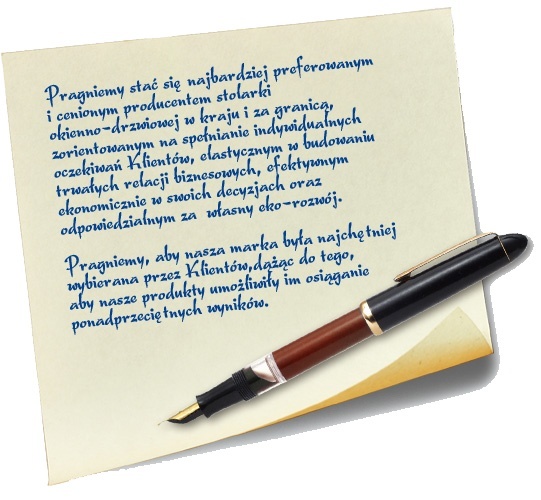 Pragniemy stać się najbardziej preferowanym
i cenionym producentem stolarki
okienno-drzwiowej w kraju i za granicą,
zorientowanym na spełnianie indywidualnych
oczekiwań Klientów, elastycznym w budowaniu
trwałych relacji biznesowych, efektywnym
ekonomicznie w swoich decyzjach oraz
odpowiedzialnym za własny eko-rozwój.
Pragniemy, aby nasza marka była najchętniej
wybierana przez Klientów,dążąc do tego,
aby nasze produkty umożliwiły im osiąganie
ponadprzeciętnych wyników.